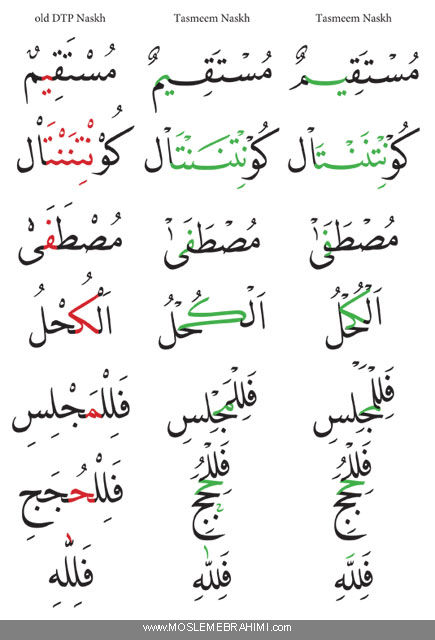 old DTP Naskh Tasmeem Naskh Tasmeem Naskh
مُسْتَقِيمٌ مُسْتَقِيمٌ مُسْتَقِيمٌ
كُوْنْتِنَنْتَاْل كُوْنْتِنَنْتَاْل كُوْنْتِنَنْتَاْل
مُصْطَفَىْ مُصْطَفَىْ مُصْطَفَىْ
اَلْكُحْلُ اَلْكُحْلُ اَلْكُحْلُ
فَلِلْمَجْلِسِ فَلِلْمَجْلِسِ فَلِلْمَجْلِسِ
فَلِلْحُجَجِ فَلِلْحُجَجِ فَلِلْحُجَجِ
فَلِلّٰهِ فَلِلّٰهِ فَلِلّٰهِ
www.MOSLEMEBRAHIMI.com